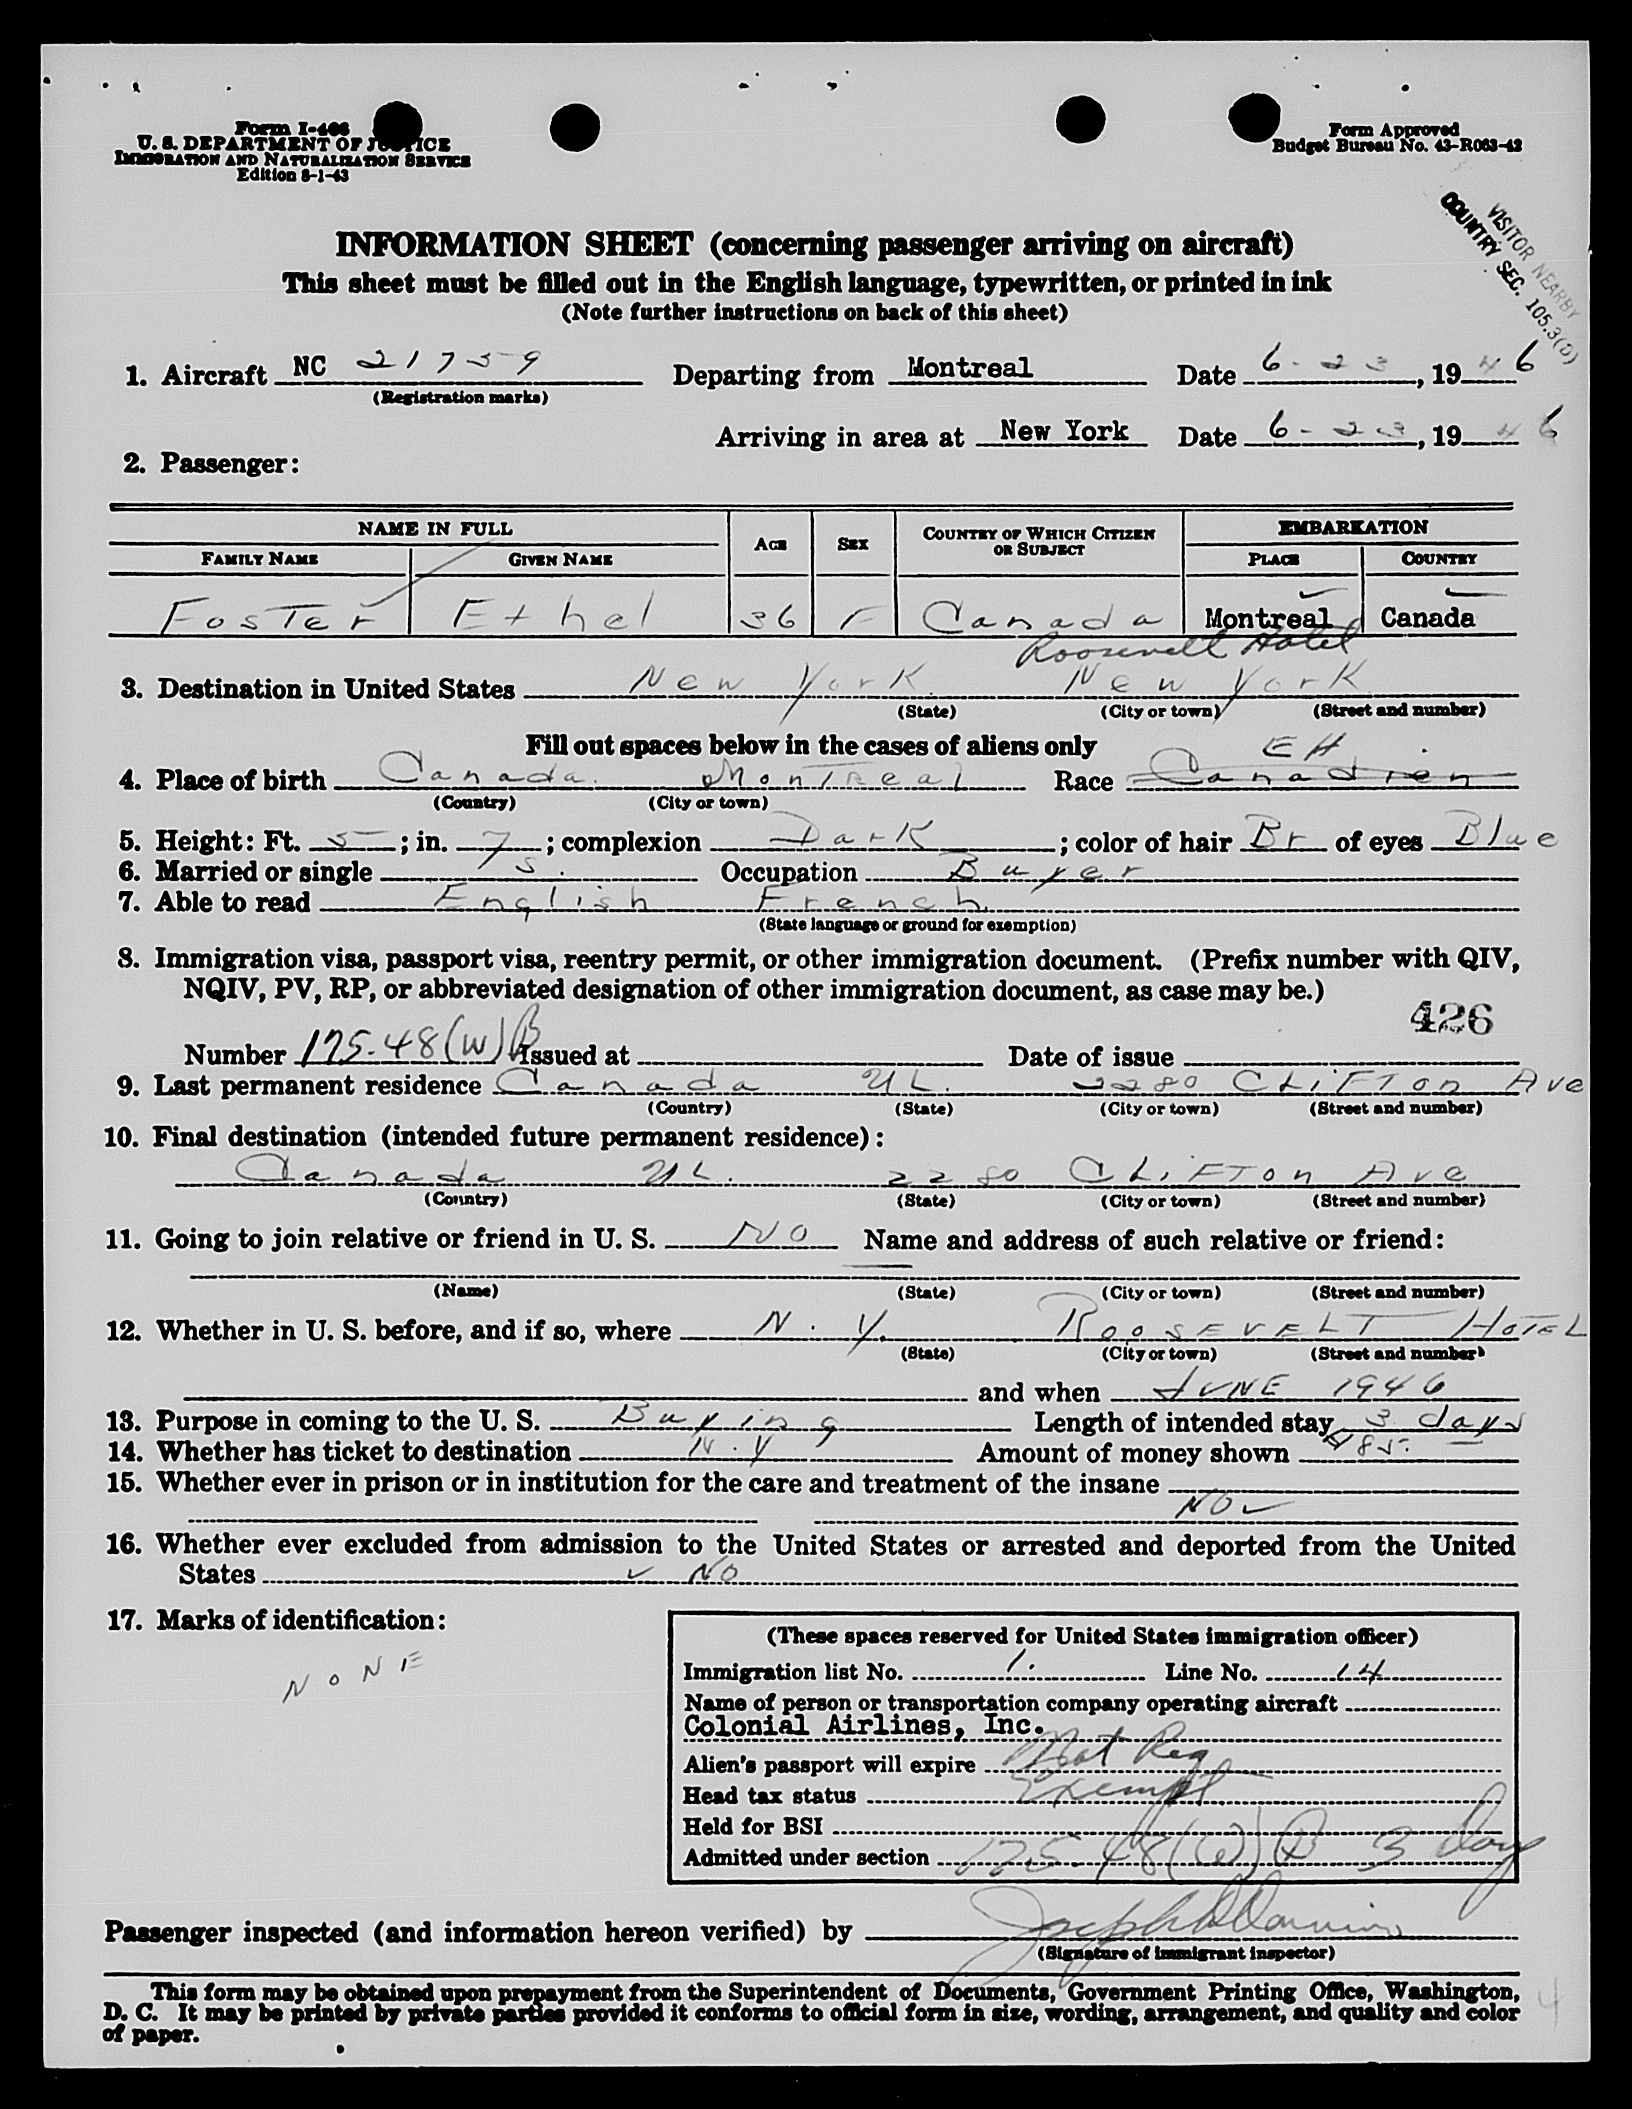 Form I-466
U. S. DEPARTMENT OF JUSTICE
IMMIGRATION AND NATURALIZATION SERVICE
Edition 8-1-43
Form Approved
Budget Bureau No. 43-R063-42
VISITOR NEARBY
COUNTRY SEC. 105.3(D)
INFORMATION SHEET (concerning passenger arriving on aircraft)
This sheet must be filled out in the English language, typewritten, or printed in ink
(Note further instructions on back of this sheet)
1. Aircraft NC 21759 Departing from Montreal Date 6-23, 1946
(Registration marks)
Arriving in area at New York Date 6-23, 1946
2. Passenger:
NAME IN FULL AGE SEX COUNTRY OF WHICH CITIZEN OR SUBJECT EMBARKATION
FAMILY NAME GIVEN NAME PLACE COUNTRY
Foster Ethel 36 F Canada Montreal Canada
Roosevelt Hotel
3. Destination in United States New York New York
(State) (City or town) (Street and number)
Fill out spaces below in the cases of aliens only
EH
4. Place of birth Canada. Montreal Race Canadien
(Country) (City or town)
5. Height: Ft. 5; in. 7; complexion Dark; color of hair Br of eyes Blue
6. Married or single S. Occupation Buyer
7. Able to read English French.
(State language or ground for exemption)
8. Immigration visa, passport visa, reentry permit, or other immigration document. (Prefix number with QIV,
NQIV, PV, RP, or abbreviated designation of other immigration document, as case may be.)
426
Number 175.48(W)B Issued at Date of issue
9. Last permanent residence Canada 2280 CLIFTon Ave
(Country) (State) (City or town) (Street and number)
10. Final destination (intended future permanent residence):
Canada 2280 CLIFTon Ave
(Country) (State) (City or town) (Street and number)
11. Going to join relative or friend in U. S. NO Name and address of such relative or friend:
(Name) (State) (City or town) (Street and number)
12. Whether in U. S. before, and if so, where N. Y. ROOSEVELT HOTEL
(State) (City or town) (Street and number)
and when JUNE 1946
13. Purpose in coming to the U. S. Buying Length of intended stay 3 days
14. Whether has ticket to destination N.Y Amount of money shown 485.
15. Whether ever in prison or in institution for the care and treatment of the insane
NO
16. Whether ever excluded from admission to the United States or arrested and deported from the United
States NO
17. Marks of identification:
NONE
(These spaces reserved for United States immigration officer)
Immigration list No. 1. Line No. 14
Name of person or transportation company operating aircraft
Colonial Airlines, Inc.
Alien's passport will expire Not Req
Head tax status Exempt
Held for BSI
Admitted under section 175.48(W)B 3 days
Passenger inspected (and information hereon verified) by
(Signature of immigrant inspector)
This form may be obtained upon prepayment from the Superintendent of Documents, Government Printing Office, Washington,
D. C. It may be printed by private parties provided it conforms to official form in size, wording, arrangement, and quality and color
of paper.
4